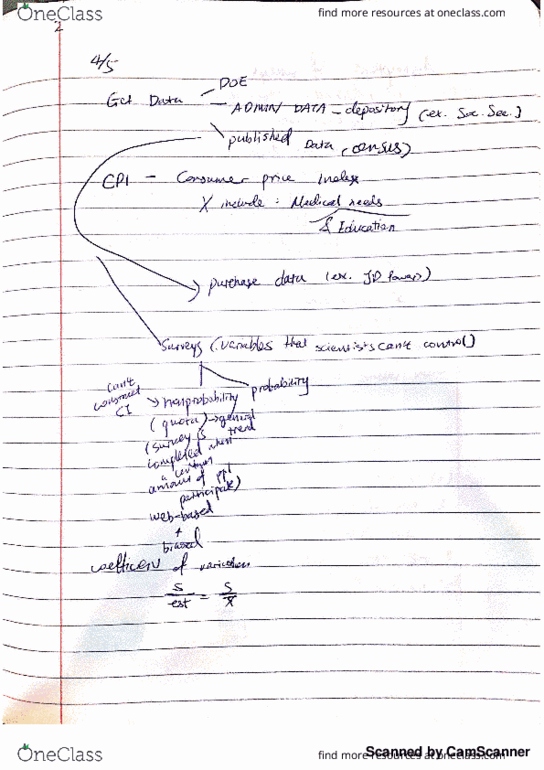 OneClass
find more resources at oneclass.com
2
4/5
DOE
Get Data
ADMIN DATA - depository (ex. Soc. Sec.)
published Data (census)
CPI - Consumer price Index
X include: Medical needs
& Education
purchase data (ex. JD Power)
Surveys (variables that scientists can't control)
probability
can't construct CI
nonprobability
(quota) → general trend
(survey is
completed when
a certain
amount of ppl
participate)
web-based
+
biased
coefficient of variation
S/est = S/x̄
OneClass
find more resources at oneclass.com
Scanned by CamScanner